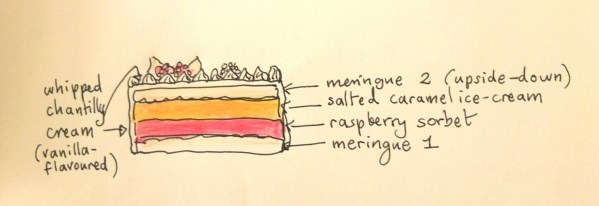 whipped
chantilly
cream
(vanilla-
flavoured)
meringue 2 (upside-down)
salted caramel ice-cream
raspberry sorbet
meringue 1